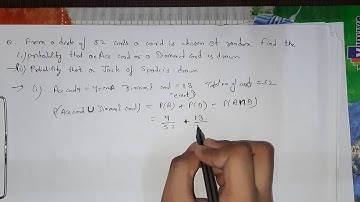 Q. From a deck of 52 cards a card is chosen at random find the
(i) probability that an Ace card or a Diamond card is drawn
(ii) Probability that a Jack of Spade is drawn
→ (i) Ace cards = 4 Diamond card = 13 Total no of cards = 52
P(Ace card ∪ Diamond card) = P(A) + P(D) - P(A∩D)
= 4/52 + 13